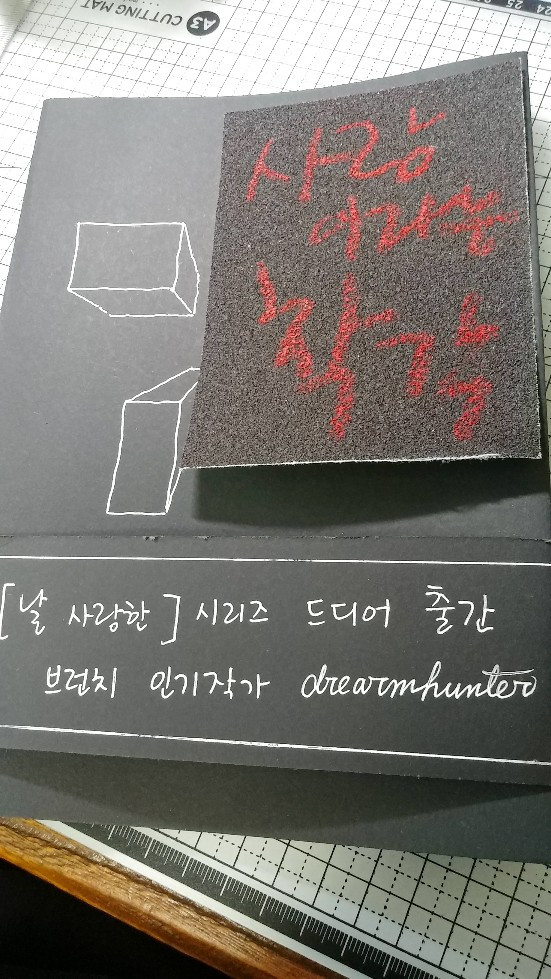 A3 CUTTING MAT
25 24
사랑
이라는
착각들
[날 사랑한] 시리즈 드디어 출간
브런치 인기작가 drearmhunter